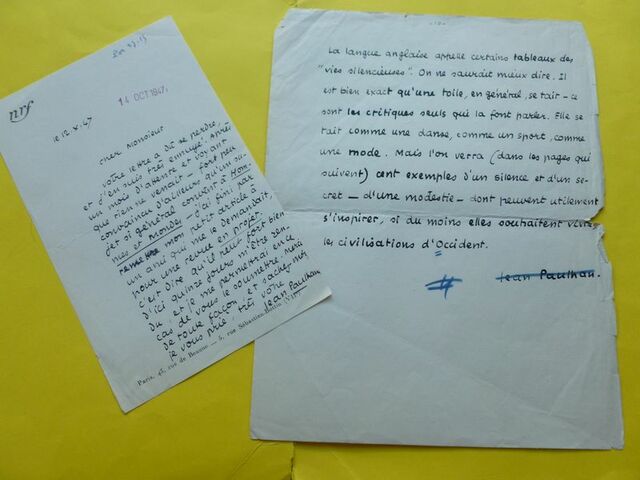 nrf
14 OCT 1947
le 12. X. 47
cher Monsieur
votre lettre a dû se perdre,
et j'en suis très ennuyé. Après
un mois d'attente et voyant
que rien ne venait - fort peu
convaincu d'ailleurs qu'un su-
jet si général convînt à Hom-
mes et Mondes - j'ai fini par
remettre mon petit article à
un ami qui me le demandait,
pour une revue en projet.
c'est dire qu'il peut fort bien
d'ici quinze jours m'être ren-
du et je me permettrai en ce
cas de vous le soumettre. Merci
de toute façon et sachez-moi,
je vous prie, très vôtre
Jean Paulhan
Paris, 43, rue de Beaune — 5, rue Sébastien-Bottin (VIIe)
La langue anglaise appelle certains tableaux des
"vies silencieuses". On ne saurait mieux dire. Il
est bien exact qu'une toile, en général, se tait - ce
sont les critiques seuls qui la font parler. Elle se
tait comme une danse, comme un sport, comme
une mode. Mais l'on verra (dans les pages qui
suivent) cent exemples d'un silence et d'un se-
cret - d'une modestie - dont peuvent utilement
s'inspirer, si du moins elles souhaitent vivre
les civilisations d'Occident.
Jean Paulhan.